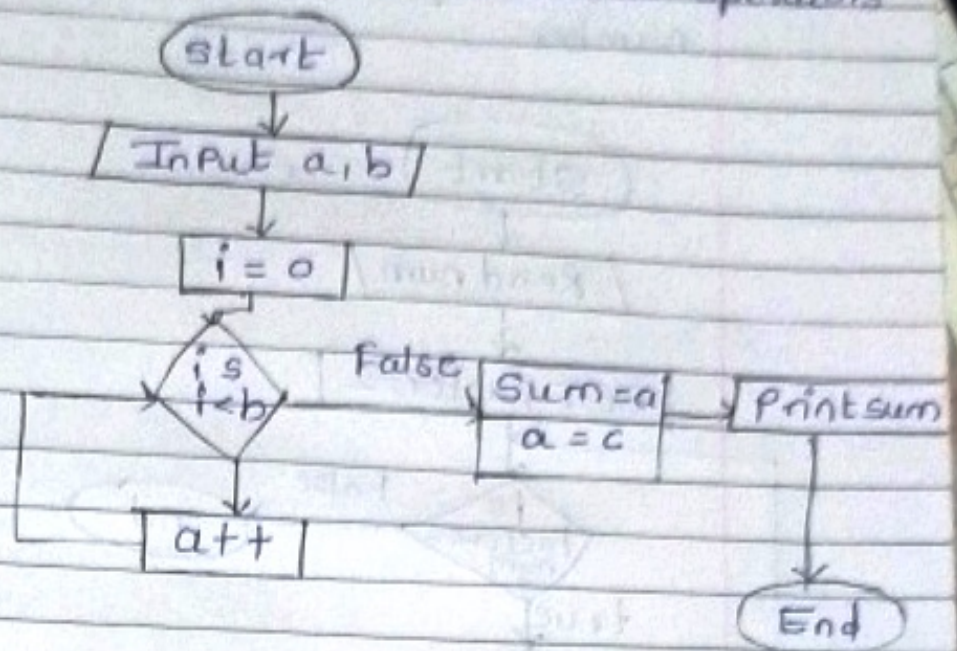 Start
Input a, b
i = 0
is
i<b
False
Sum = a
a = c
Print sum
a++
End